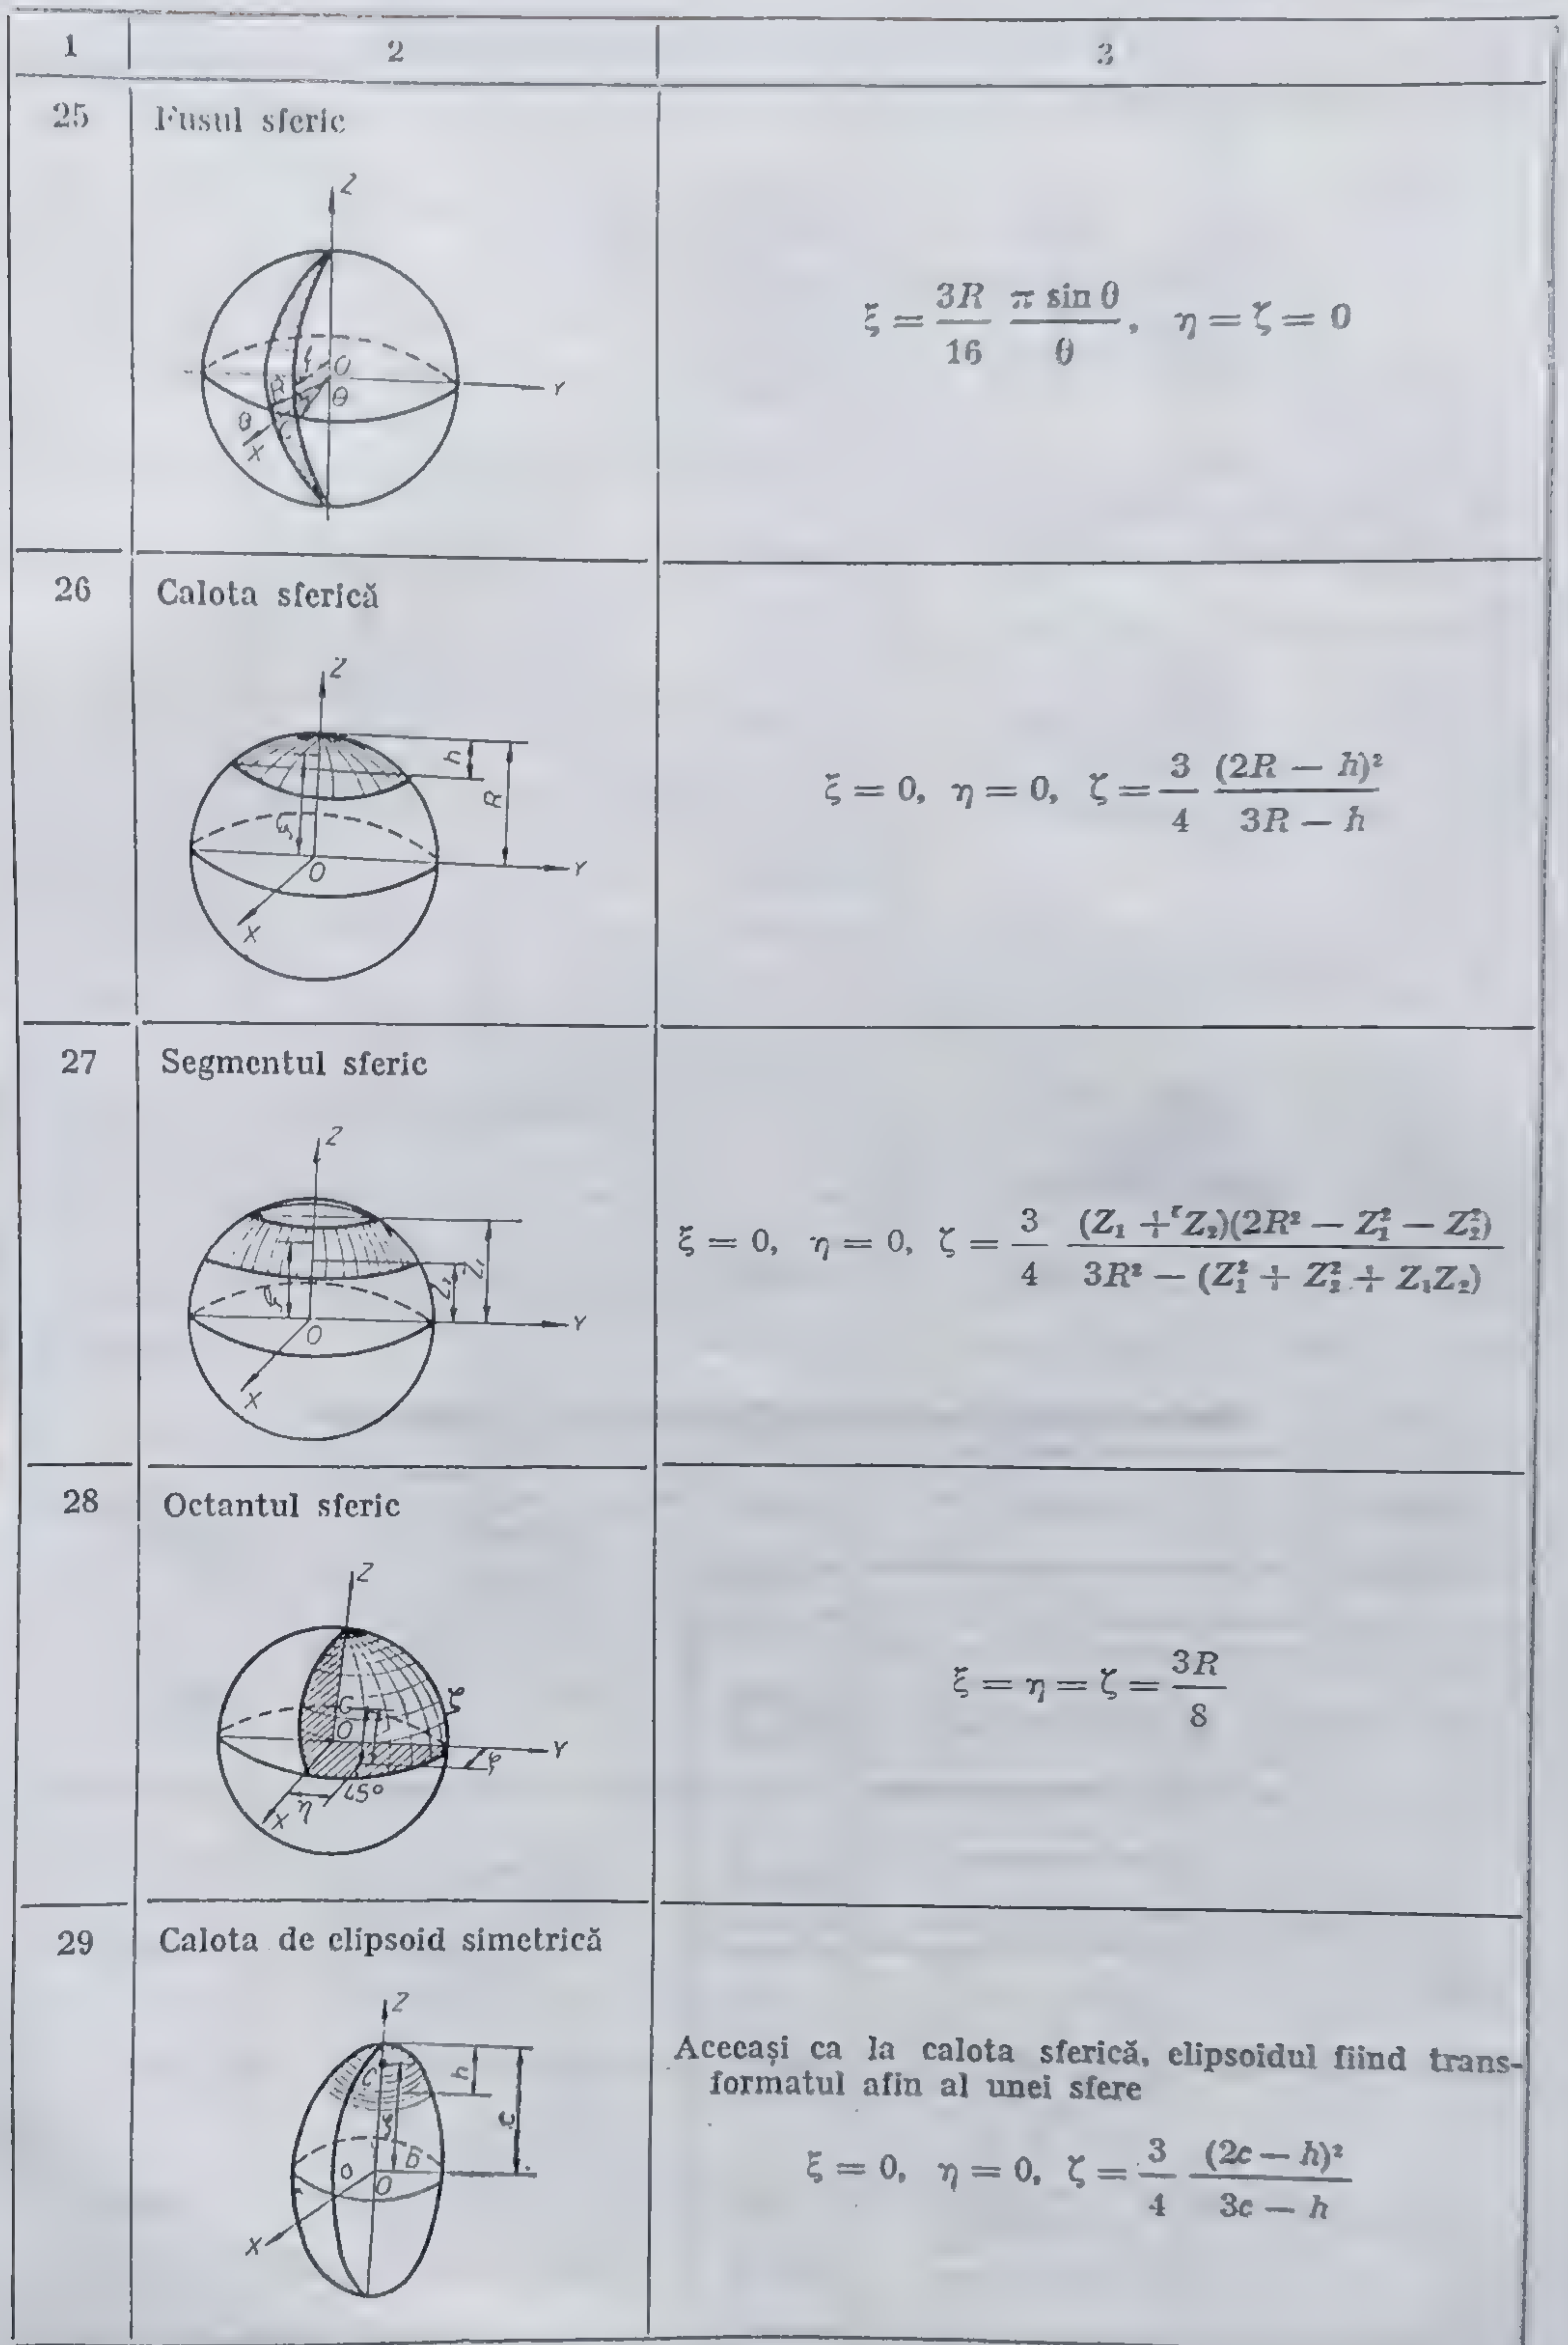 1 2 3
25 Fusul sferic
Z
O
Y
θ
X
ξ = 3R/16 π sin θ/θ, η = ζ = 0
26 Calota sferică
Z
h
R
ζ
O
Y
X
ξ = 0, η = 0, ζ = 3/4 (2R — h)²/3R — h
27 Segmentul sferic
Z
ζ
O
Y
X
ξ = 0, η = 0, ζ = 3/4 (Z₁ + Z₂)(2R² — Z₁² — Z₂²)/3R² — (Z₁² + Z₂² + Z₁Z₂)
28 Octantul sferic
Z
C
ζ
O
Y
45°
X η
ξ = η = ζ = 3R/8
29 Calota de elipsoid simetrică
Z
C
h
c
O
X
Aceeași ca la calota sferică, elipsoidul fiind trans-
formatul afin al unei sfere
ξ = 0, η = 0, ζ = 3/4 (2c — h)²/3c — h